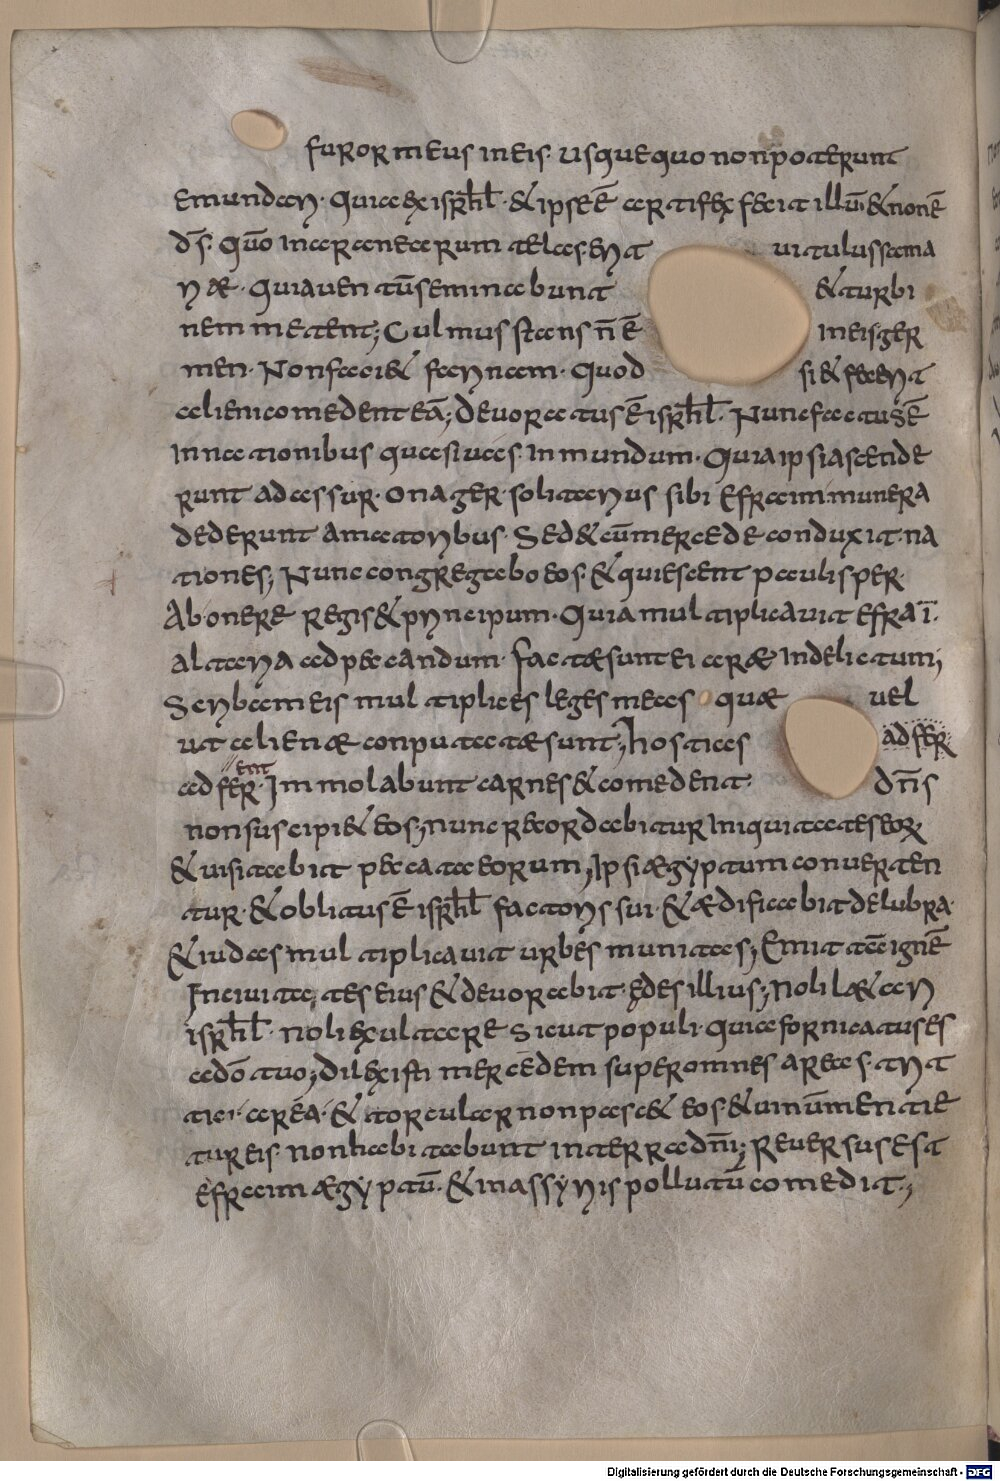 furor meus in eis. usquequo non poterunt
emundari. Quia ex isrħl. & ipse ē artifex fecit illū. & non ē
d̄s. Quō in aranearum telas erit uitulus sama
riæ. Quia uentū seminabunt & turbi
nem metent; Culmus stans n̄ ē in eis. ger
men. Non faci& farinam. Quod si & fecerit
alieni comedent eā; Deuoratus ē isrħl. Nunc factus ē
in nationibus quasi uas inmundum. Quia ipsi ascende
runt ad assur. Onager solitarius sibi efraim. munera
dederunt amatoribus. Sed & cū mercede conduxit na
tiones; Nunc congregabo eos. & quiescent paulisper.
Ab onere regis & principum. Quia multiplicauit efraī.
altaria ad peccandum. factæ sunt ei aræ in delictum;
Scribam eis multiplices leges meas quæ uel
ut alienæ conputatæ sunt; hostias adfer
ent
adfer. Immolabunt carnes & comedent. dn̄s
non suscipi& eos; nunc recordabitur iniquitates eor̄.
& uisitabit peccata eorum; Ipsi ægyptum conuerten
tur. & oblitus ē isrħl factoris sui. & ædificabit delubra.
& iudas multiplicauit urbes munitas; Emittā ignē
in ciuitates eius & deuorabit ędes illius; Noli læ&ari
isrħl. noli exultare sicut populi. quia fornicatus es
a dō tuo; Dilexisti mercedem super omnes areas. trit
tici. area. & torcular non pasc& eos. & uinūm mentie
tur eis. non habitabunt in terra dn̄i; Reuersus est
efraim ægyptū. & in assyriis pollutū comedit;
Digitalisierung gefördert durch die Deutsche Forschungsgemeinschaft - DFG